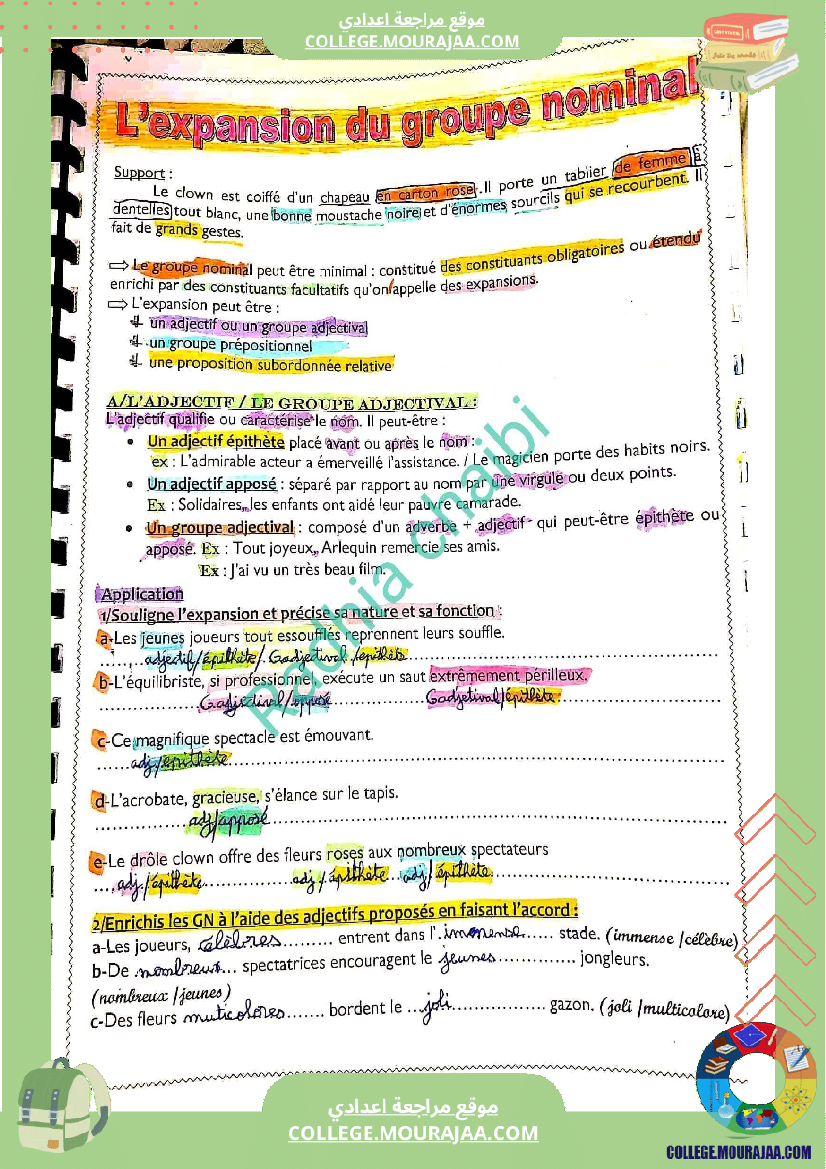 موقع مراجعة اعدادي
COLLEGE.MOURAJAA.COM
L'expansion du groupe nominal
Support :
Le clown est coiffé d'un chapeau en carton rose. Il porte un tablier de femme à
dentelles tout blanc, une bonne moustache noire et d'énormes sourcils qui se recourbent. Il
fait de grands gestes.
⇨ Le groupe nominal peut être minimal : constitué des constituants obligatoires ou étendu
enrichi par des constituants facultatifs qu'on appelle des expansions.
⇨ L'expansion peut être :
un adjectif ou un groupe adjectival
un groupe prépositionnel
une proposition subordonnée relative
A/L'ADJECTIF / LE GROUPE ADJECTIVAL :
L'adjectif qualifie ou caractérise le nom. Il peut-être :
• Un adjectif épithète placé avant ou après le nom :
ex : L'admirable acteur a émerveillé l'assistance. / Le magicien porte des habits noirs.
• Un adjectif apposé : séparé par rapport au nom par une virgule ou deux points.
Ex : Solidaires, les enfants ont aidé leur pauvre camarade.
• Un groupe adjectival : composé d'un adverbe + adjectif qui peut-être épithète ou
apposé. Ex : Tout joyeux, Arlequin remercie ses amis.
Ex : J'ai vu un très beau film.
Radhia chaibi
Application
1/Souligne l'expansion et précise sa nature et sa fonction :
a-Les jeunes joueurs tout essoufflés reprennent leurs souffle.
adjectif/épithète/. Gadjectival /épithète
b-L'équilibriste, si professionnel, exécute un saut extrêmement périlleux.
Gadjectival/apposé Gadjetival/épithète
c-Ce magnifique spectacle est émouvant.
adj/épithète
d-L'acrobate, gracieuse, s'élance sur le tapis.
adj/apposé
e-Le drôle clown offre des fleurs roses aux nombreux spectateurs
adj/épithète adj/épithète adj/épithète
2/Enrichis les GN à l'aide des adjectifs proposés en faisant l'accord :
a-Les joueurs, célèbres......... entrent dans l'.immense...... stade. (immense /célèbre)
b-De nombreux... spectatrices encouragent le jeunes............... jongleurs.
(nombreux /jeunes)
c-Des fleurs muticolores....... bordent le ...joli.................. gazon. (joli /multicolore)
موقع مراجعة اعدادي
COLLEGE.MOURAJAA.COM
COLLEGE.MOURAJAA.COM